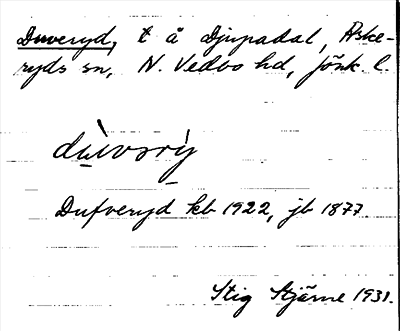 Duveryd, t å Djupadal, Aske-
ryds sn, N. Vedbo hd, Jönk. l.
dùvvrý
Dufveryd kb 1922, jb 1877
Stig Stjärne 1931.